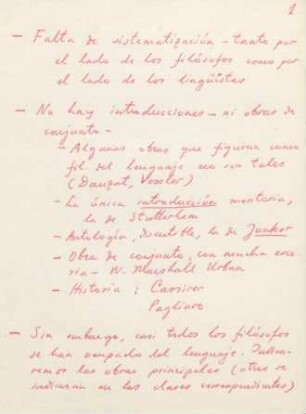 1
- Falta de sistematización - tanto por
el lado de los filósofos como por
el lado de los lingüistas
- No hay introducciones - ni obras de
conjunto -
- Algunas obras que figuran como
fil. del lenguaje no son tales
(Dauzat, Vossler)
- La única introducción
la de
- Antología, discutible, la de Junker
- Obra de conjunto, con mucha
ria - W. Marshall Urban
- Historia: Cassirer
Pagliaro
- Sin embargo, casi todos los filósofos
se han ocupado del lenguaje.
remos las obras principales (otras se
indicarán en las clases correspondientes)